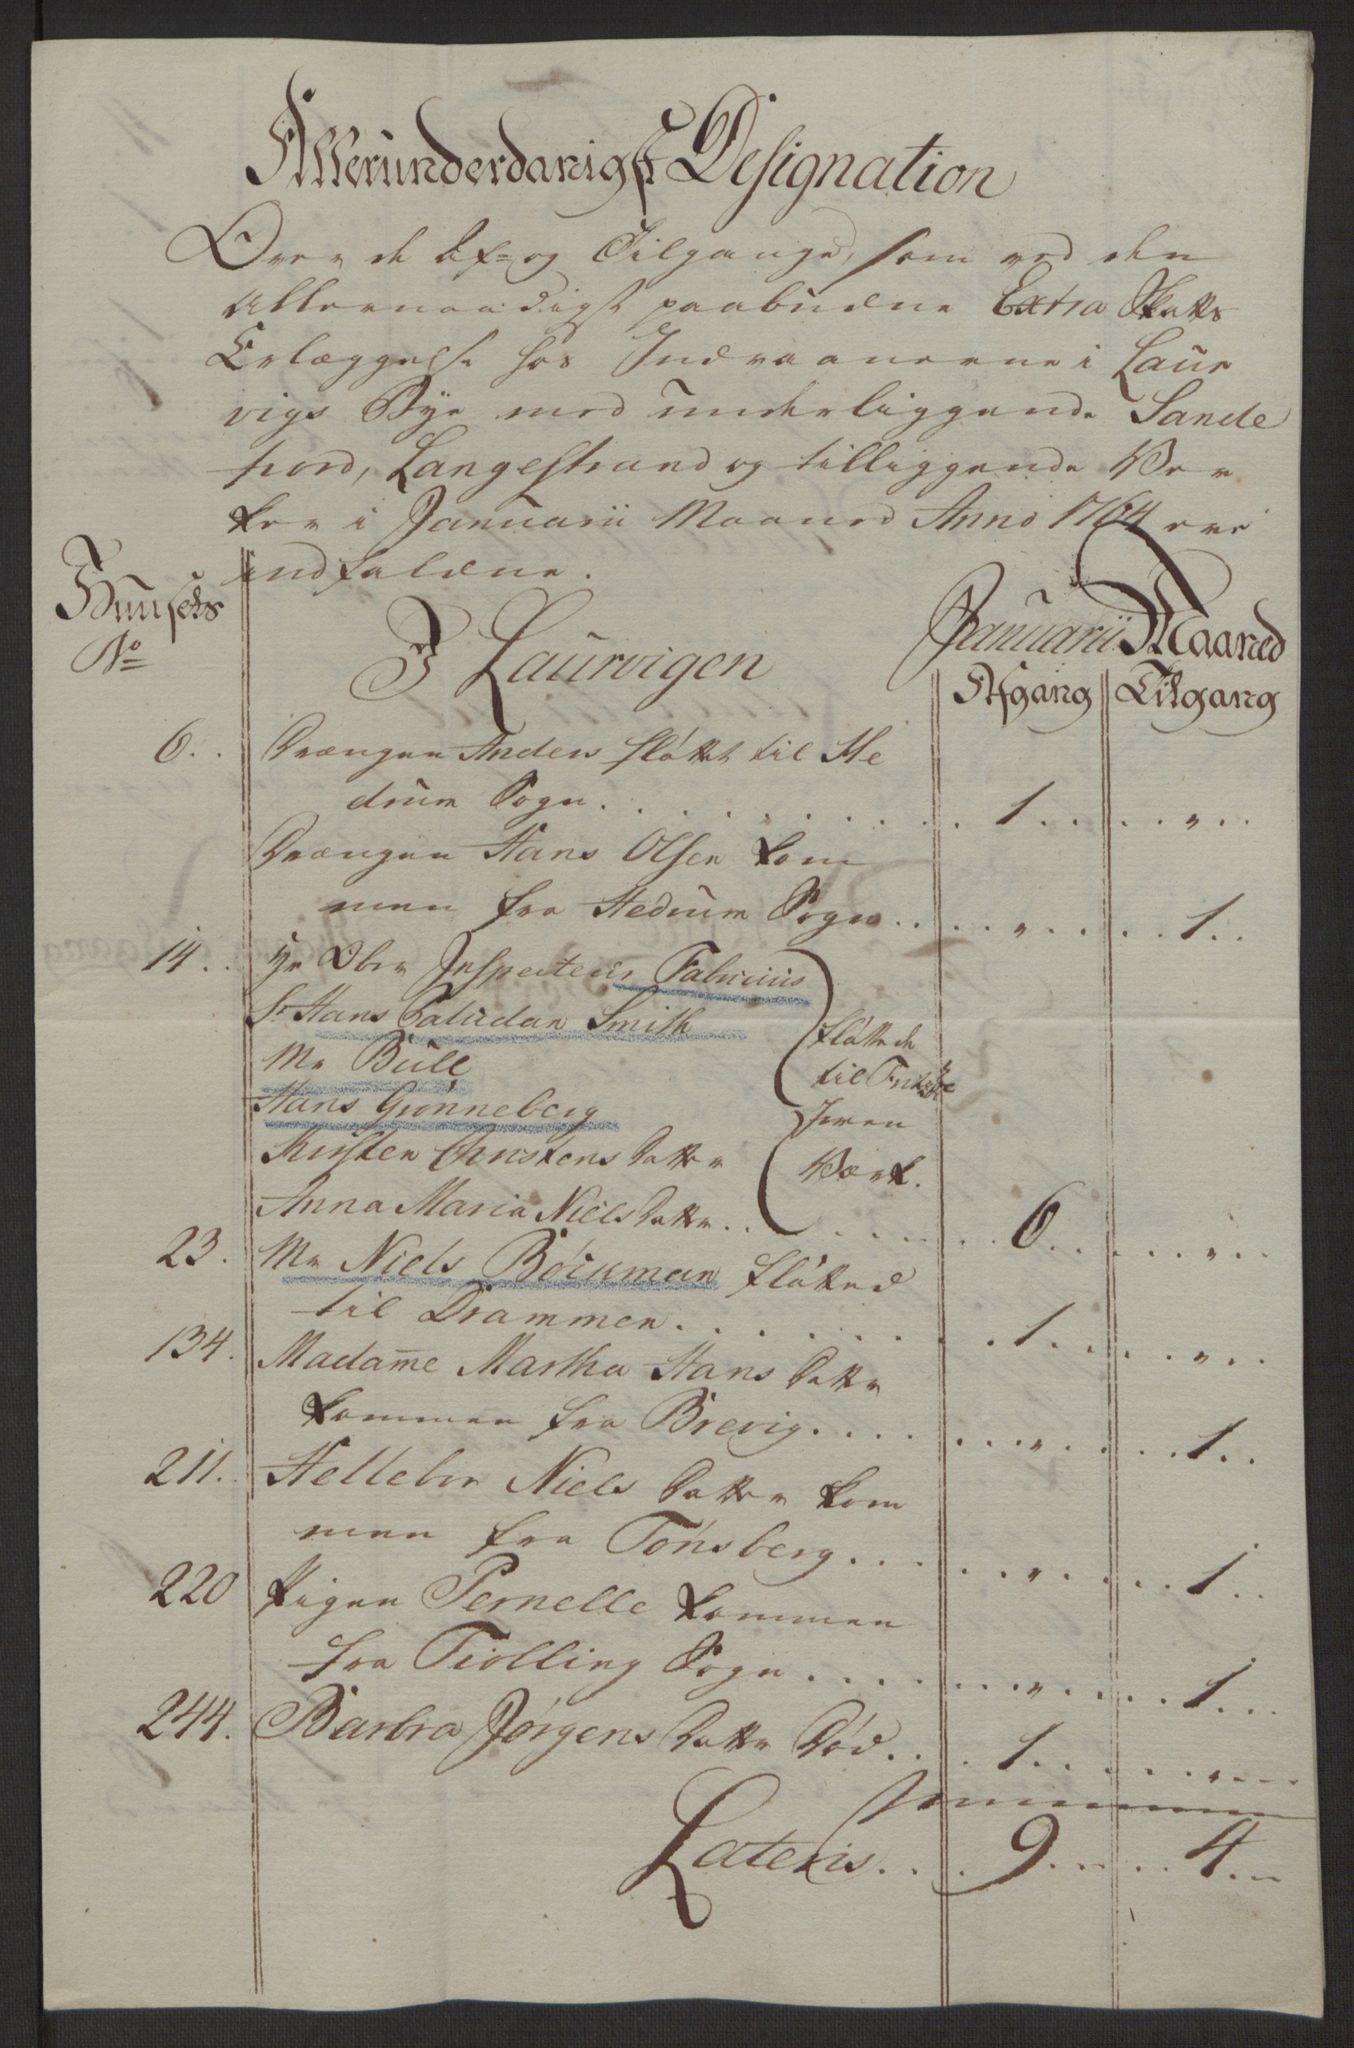 Allerunderdanigst Designation
Over de Af- og Tilgange, som ved den
allernaadigst paabudne Extra Skatts
Erlæggelse hos Indvaanerne i Laur
vigs Bye med underliggende Sande
fiord, Langestrand og tilliggende Ver
ker i Januarii Maaned Anno 1764 ere
indfaldne.
Huusets
No
I Laurvigen
Januarii Maaned
Afgang Tilgang
6. Drængen Anders fløttet til He
drum Sogn. 1. "
Drængen Hans Olsen kom
men fra Hedrum Sogn. " 1.
14. Hr Ober Inspecteur Fabricius
Sr Hans Paludan Smith
Mr Bull
Hans Grønneberg
Kirsten Christens Datter
Anna Maria Niels Datter. 6. "
fløttede
til Fritzøe
Jern
Værk.
23. Mr Niels Böckman fløtted
til Drammen. 1. "
134. Madame Martha Hans Datter
kommen fra Brevig. " 1.
211. Hellebor Niels Datter kom
men fra Tønsberg. " 1.
220 Pigen Pernelle kommen
fra Tiølling Sogn. " 1.
244. Barbra Jørgens Datter død. 1. "
Lateris. 9. 4.